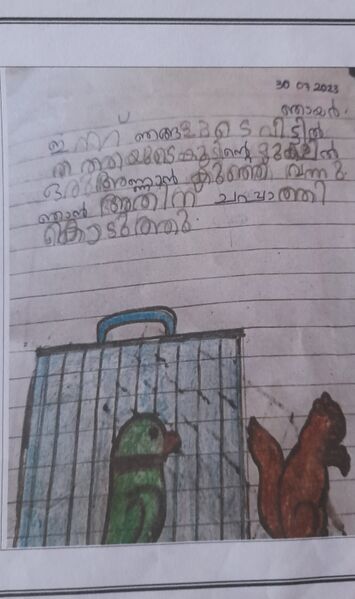 30 07 2023
ഞായർ.
ഇന്ന് ഞങ്ങളുടെ വീട്ടിൽ
തത്തയുടെ കൂടിന്റെ മുകളിൽ
ഒരു അണ്ണാൻ കുഞ്ഞ് വന്നു.
ഞാൻ അതിന് ചപ്പാത്തി
കൊടുത്തു.